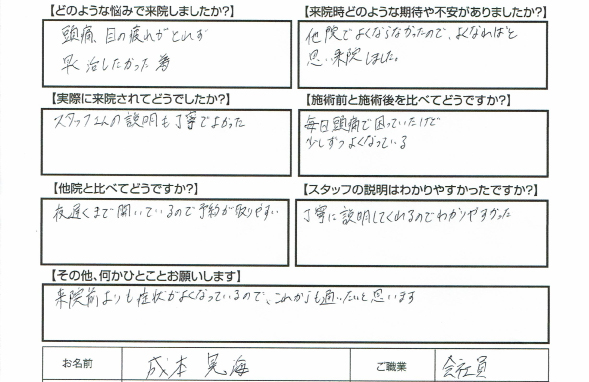 【どのような悩みで来院しましたか?】
頭痛、目の疲れがとれず
早く治したかった為
【来院時どのような期待や不安がありましたか?】
他院でよくならなかったので、よくなればと
思い来院しました。
【実際に来院されてどうでしたか?】
スタッフさんの説明も丁寧でよかった
【施術前と施術後を比べてどうですか?】
毎日頭痛で困っていたけど
少しずつよくなっている
【他院と比べてどうですか?】
夜遅くまで開いているので予約が取りやすい
【スタッフの説明はわかりやすかったですか?】
丁寧に説明してくれるのでわかりやすかった
【その他、何かひとことお願いします】
来院前よりも症状がよくなっているので、これからも通いたいと思います
お名前 成本 晃海 ご職業 会社員